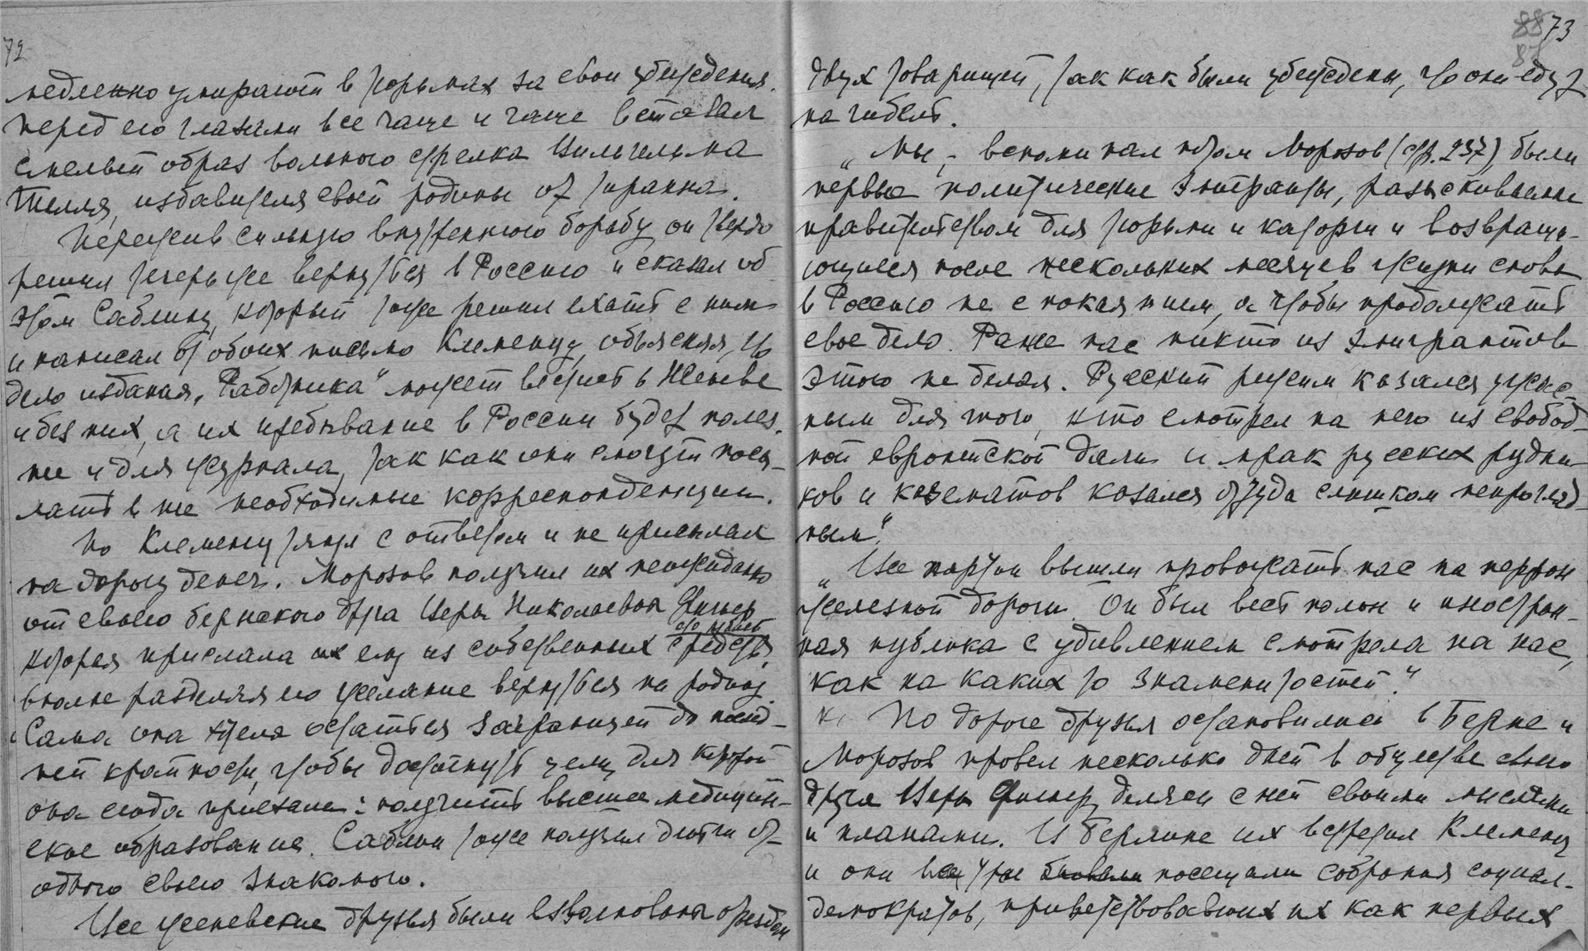 72
медленно умирают в тюрьмах за свои убеждения.
Перед его глазами все чаще и чаще вставал
смелый образ вольного стрелка Вильгельма
Телля, избавителя своей родины от тирана.
Пережив сильную внутреннюю борьбу он твердо
решил теперь же вернуться в Россию и сказал об
этом Саблину, который тоже решил ехать с ним
и написал от обоих письмо Клеменцу, объясняя, что
дело издания „Работника" может вестись в Женеве
и без них, а их пребывание в России будет полез-
не и для журнала, так как они смогут посы-
лать в не необходимые корреспонденции.
Но Клеменц тянул с ответом и не присылал
на дорогу денег. Морозов получил их неожиданно
от своего бернского друга Веры Николаевны Фигнер
которая прислала их ему из собственных средств,
вполне разделяя его желание вернуться на родину.
Сама она хотела остаться заграницей до послед-
ней крайности, чтобы достигнуть цели, для которой
она сюда приехала: получить высшее медицин-
ское образование. Саблин тоже получил деньги от
одного своего знакомого.
Все женевские друзья были взволнованы отъездом
88
87
73
двух товарищей, так как были убеждены, что они едут
на гибель.
„Мы, – вспоминал потом Морозов (стр. 237) были
первые политические эмигранты, разыскиваемые
правительством для тюрьмы и каторги и возвраща-
ющиеся после нескольких месяцев жизни снова
в Россию не с покаянием, а чтобы продолжать
свое дело. Раньше нас никто из эмигрантов
этого не делал. Русский режим казался ужас-
ным для того, кто смотрел на него из свобод-
ной европейской дали и мрак русских рудни-
ков и казематов казался оттуда слишком непрогляд-
ным".
„Все портои вышли провожать нас на перрон
железной дороги. Он был весь полон и иностран-
ная публика с удивлением смотрела на нас,
как на каких то знаменитостей."
По дороге друзья остановились в Берне и
Морозов провел несколько дней в обществе своего
друга Веры Фигнер, делясь с ней своими мыслями
и планами. В Берлине их встретил Клеменц
и они все трое посещали собрания социал-
демократов, приветствовавших их как первых